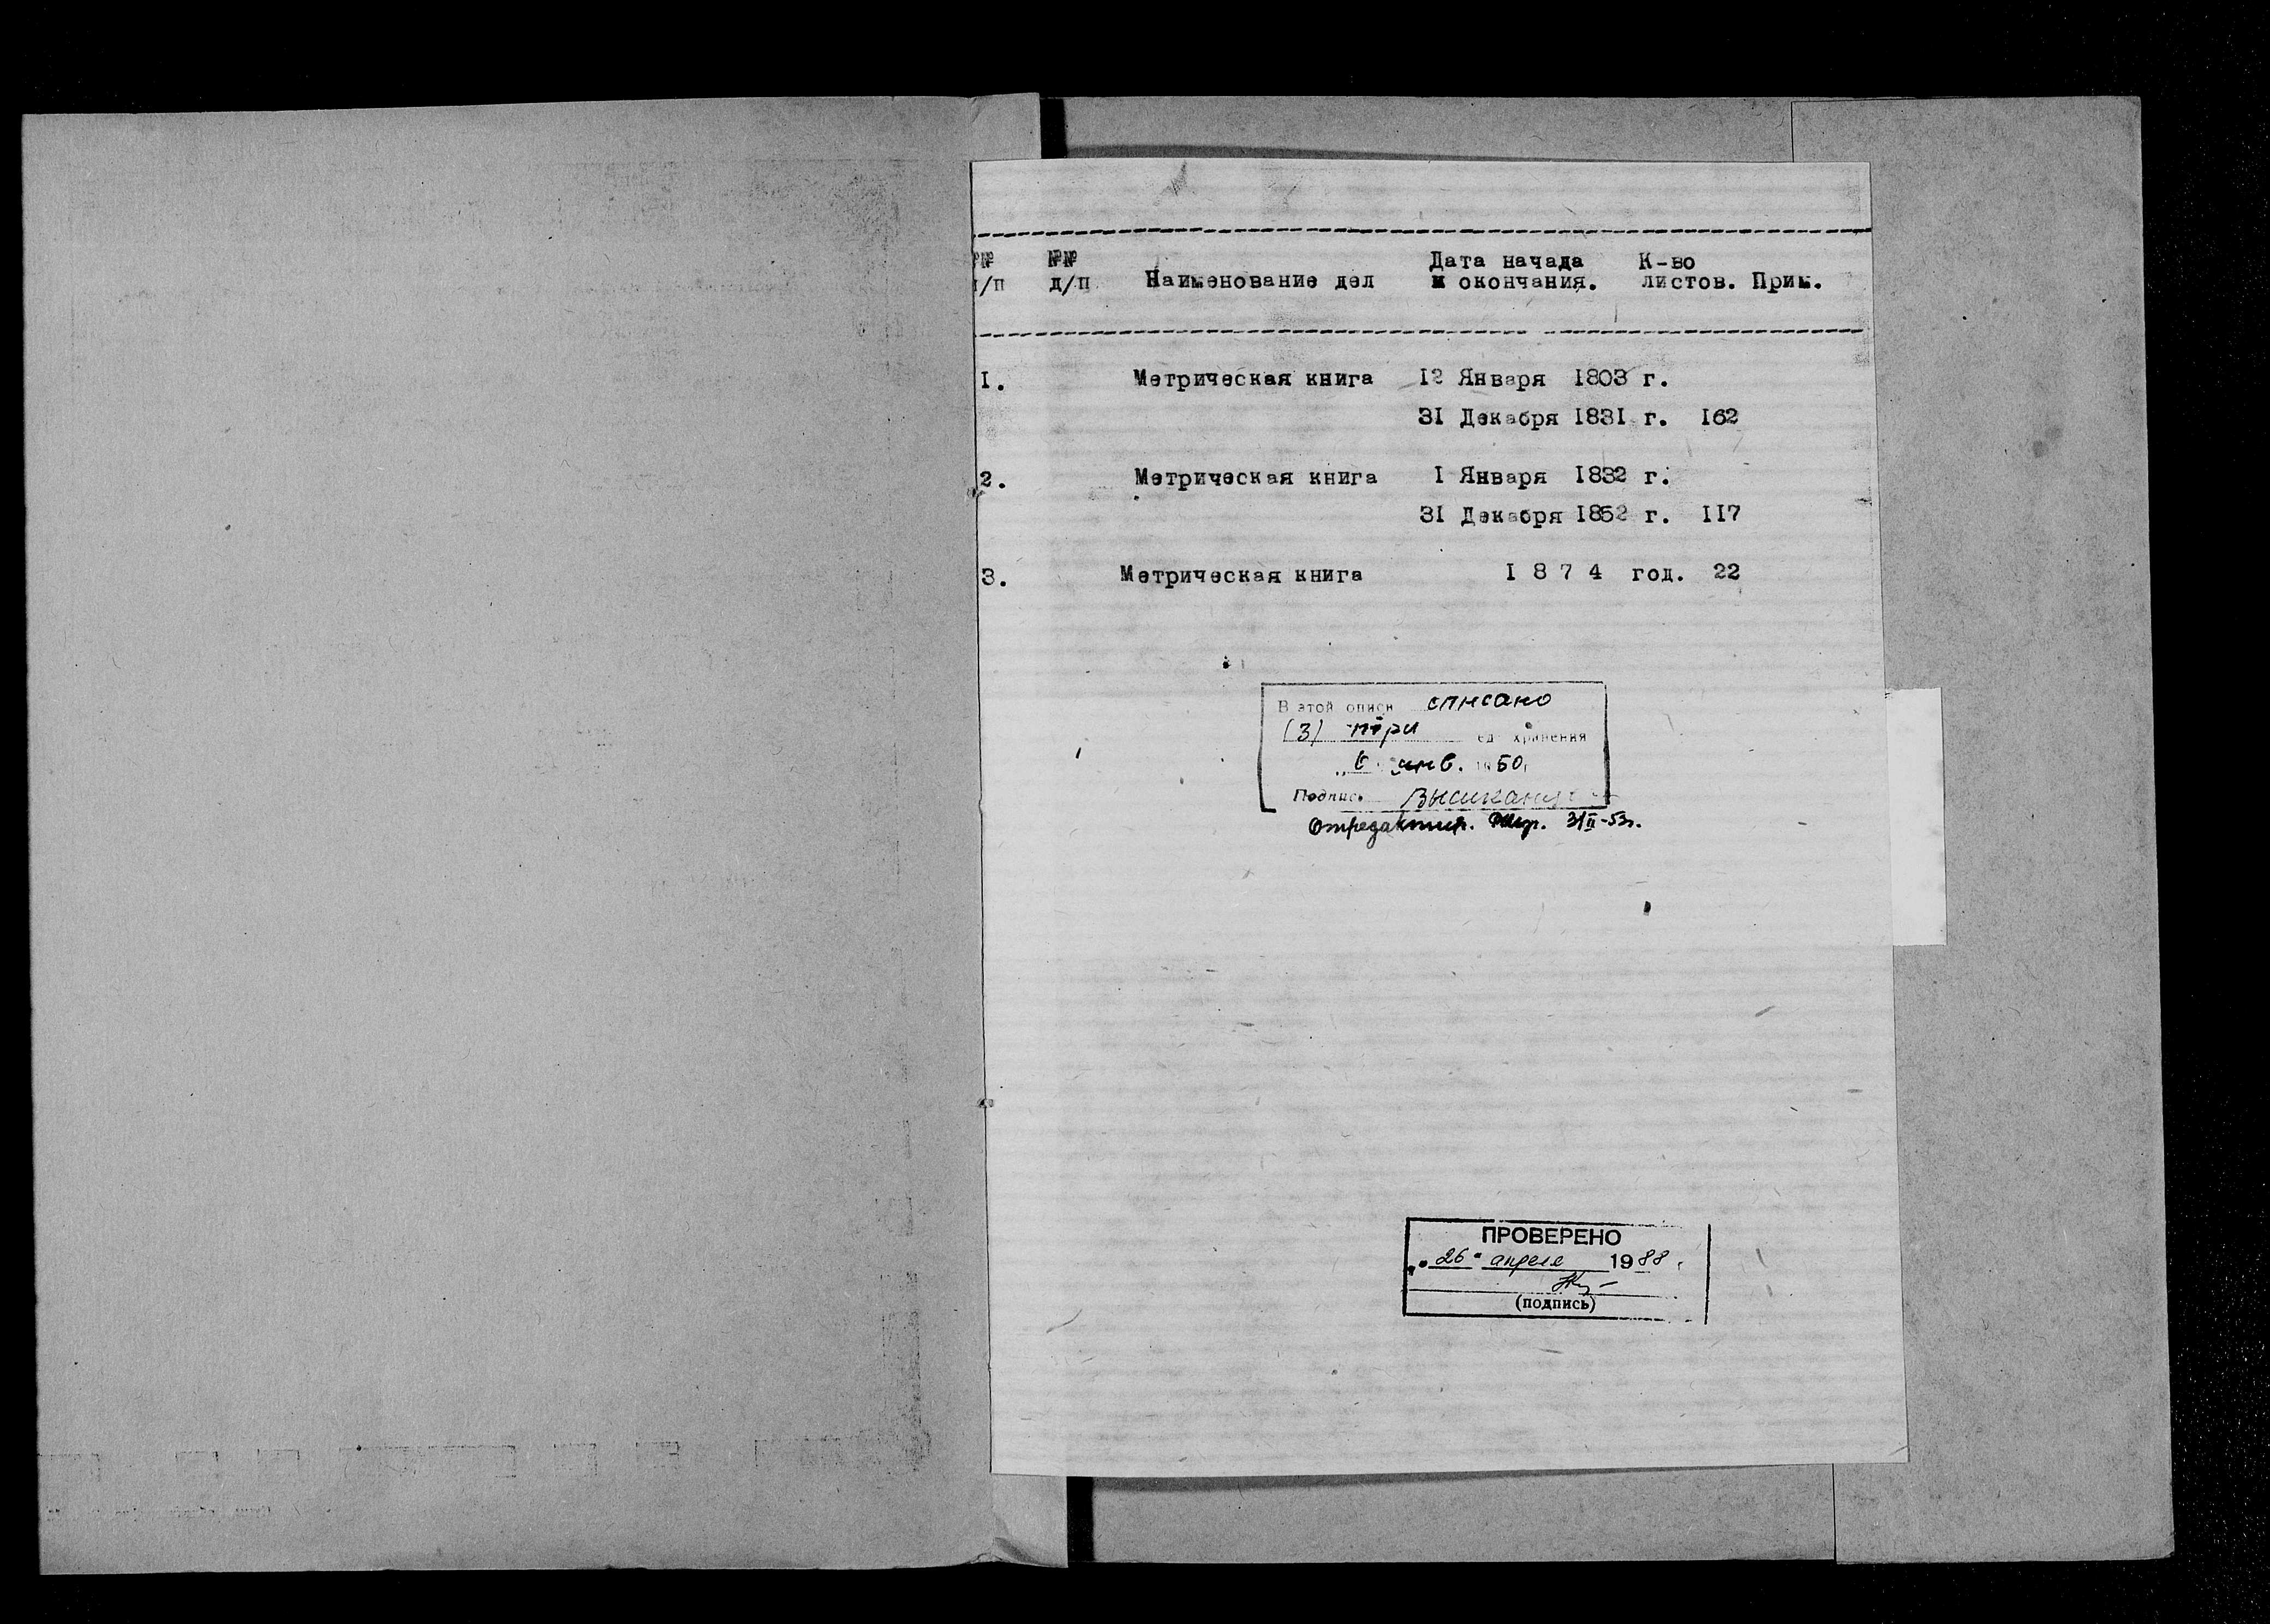 №№ №№ Дата начада К-во
п/п д/п Наименование дел и окончания. листов. Прим.
I. Метрическая книга I2 Января I803 г.
3I Декабря I83I г. I62
2. Метрическая книга I Января I832 г.
3I Декабря I852 г. II7
3. Метрическая книга I 8 7 4 год. 22
В этой описи списано
(3) три ед. хранения
янв. 1950 г.
Подпись
Отредактир. 3/II-53г.
ПРОВЕРЕНО
"26" апреля 1988 г.
(подпись)